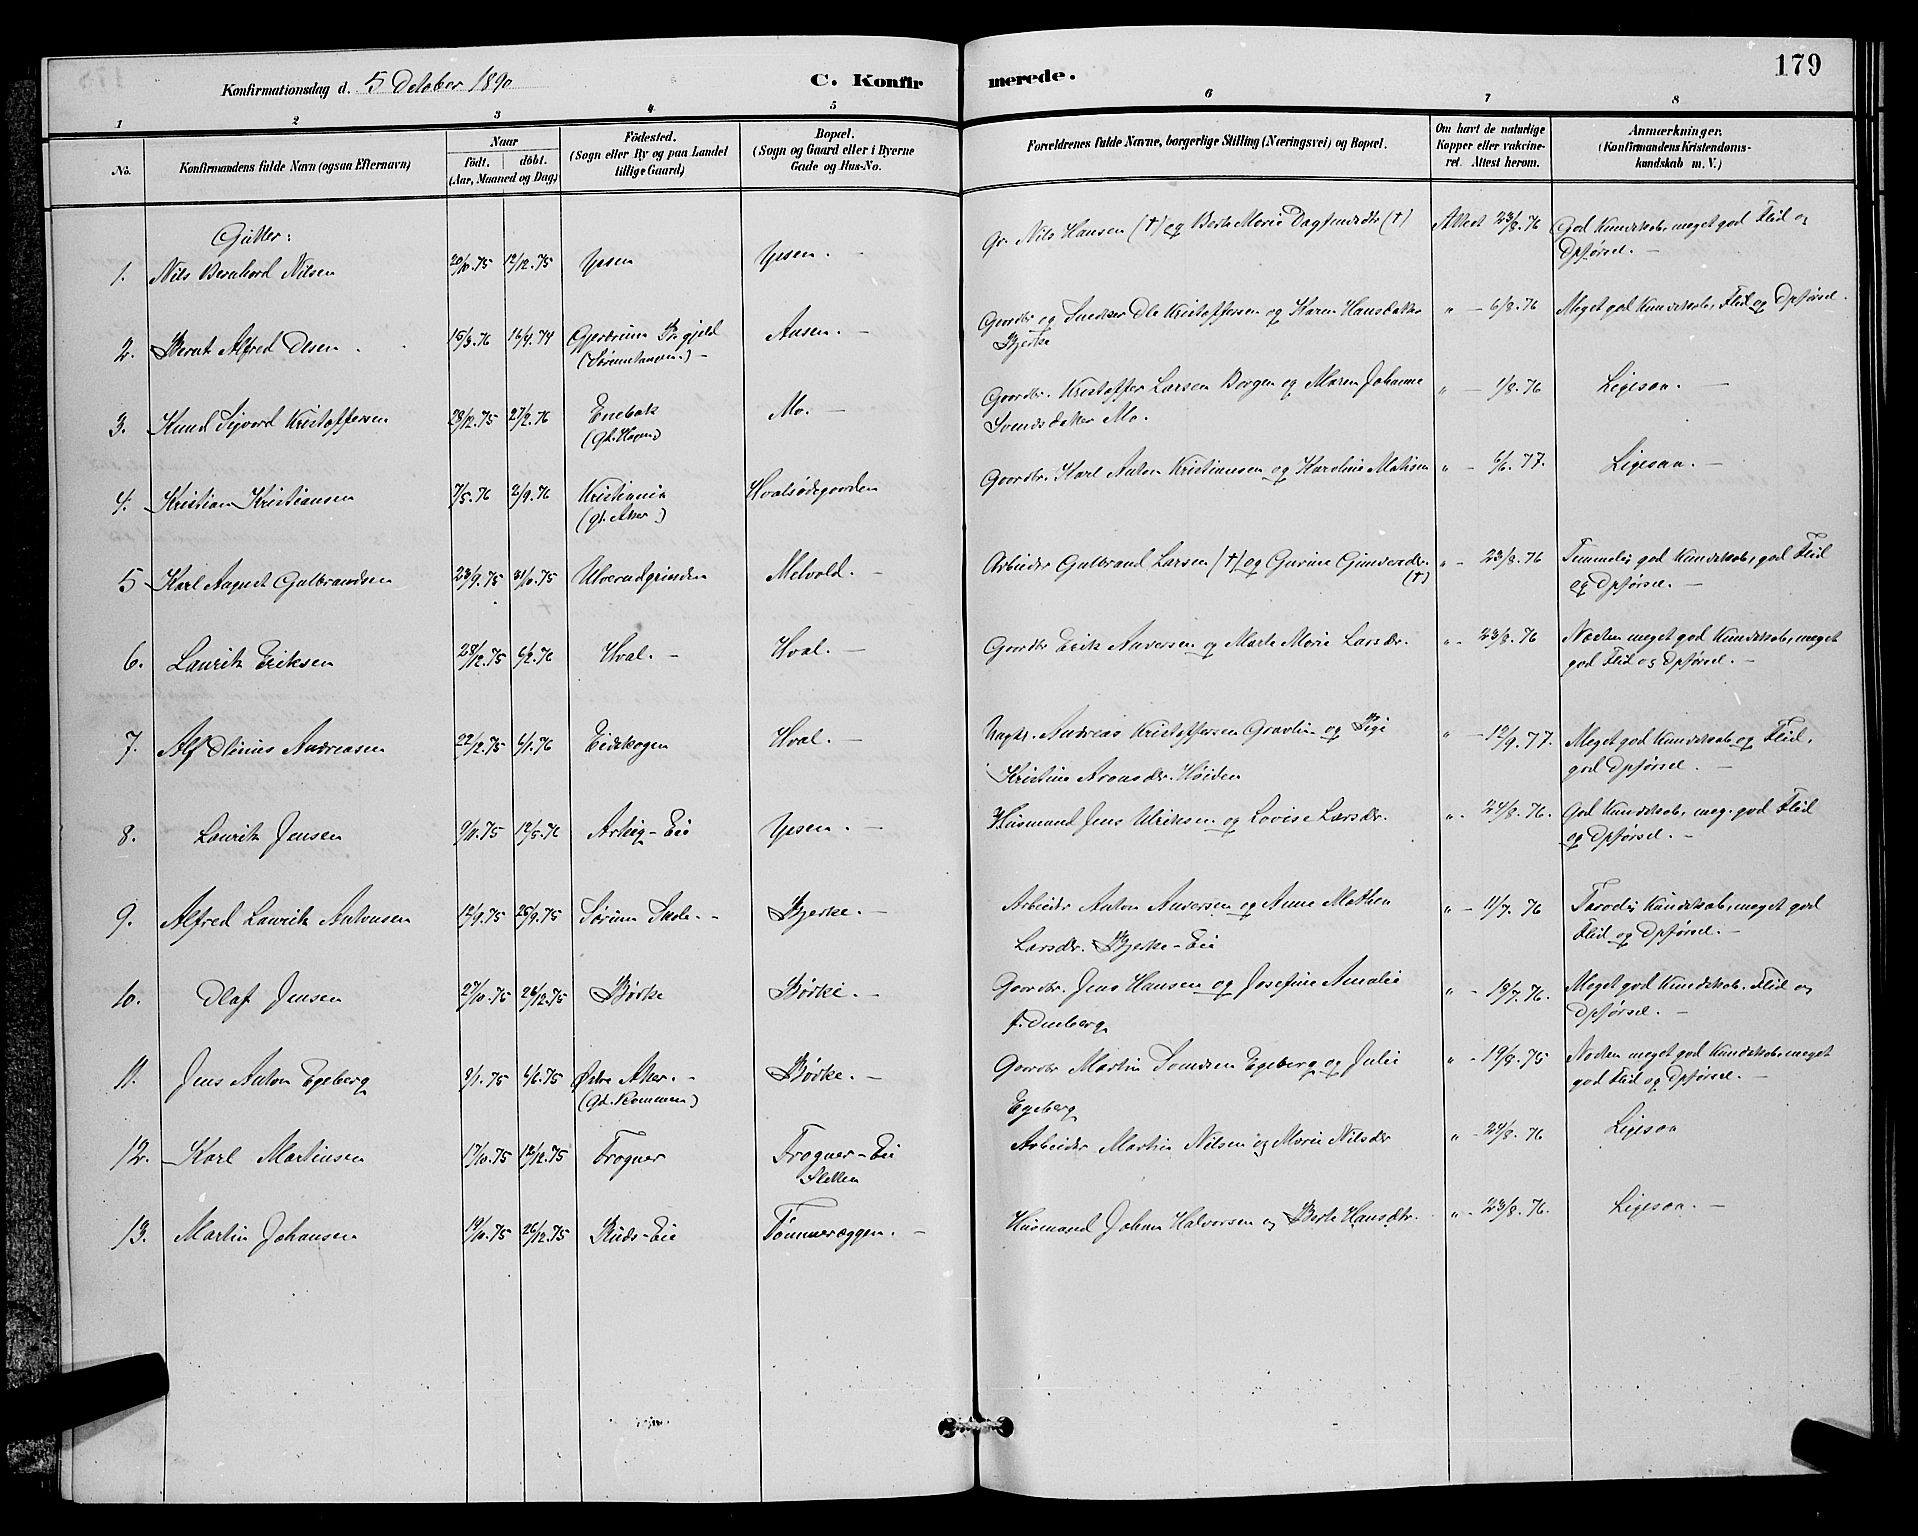 179
Konfirmationsdag d. 5 October 1890 C. Konfirmerede.
1 2 3 4 5 6 7 8
No. Konfirmandens fulde Navn (ogsaa Efternavn) Naar født. døbt. (Aar, Maaned og Dag) Födested. (Sogn eller By og paa Landet tillige Gaard) Bopæl. (Sogn og Gaard eller i Byerne Gade og Hus-No. Forældrenes fulde Navne, borgerlige Stilling (Næringsvei) og Bopæl. Om havt de naturlige Kopper eller vakcineret. Attest herom. Anmærkninger. (Konfirmandens Kristendomskundskab m. V.)
Gutter:
1. Nils Bernhard Nilsen 20/10.75 12/12.75 Ypsen Ypsen. – Gr. Nils Hansen (†) og Berte Marie Dagfinsdtr (†) Attest 23/8.76 God Kundskab, meget god Flid og
Opførsel. –
2. Bernt Alfred Olsen 15/3.76 Gjerdrum Prgjeld Aasen. – Gaardbr og Snedker Ole Kristoffersen og Karen Hansdatter " – 6/8.76 Meget god Kundskab, Flid og Opførsel.
Bjerke
3. Knud Sigvard Kristoffersen 23/12.75 27/2.76 Enebak Mo. – Gaardbr. Kristoffer Larsen Borgen og Maren Johanne " – 1/8.76 Ligesaa. –
Svendsdatter Mo.
4. Kristian Kristiansen 7/5.76 2/9.76 Kristiania Hvalsødegaarden Gaardbr. Karl Anton Kristiansen og Karoline Matisen " – 6/6.77. Ligesaa. –
(gt. Aker.)
5 Karl August Gulbrandsen 23/9.75 31/10.75 Ulverudgrinden Melvold. – Arbeider Gulbrand Larsen (†) og Gurine Gundersdr. (†) " – 23/8.76 Temmelig god Kundskab, god Flid
og Opførsel. –
6. Lauritz Eriksen 28/12.75 6/2.76 Hval. – Hval. – Gaardbr Erik Andersen og Marte Marie Larsdr. " – 23/8.76 Næsten meget god Kundskab, meget
god Flid og Opførsel. –
7. Alf Andreasen 22/12.75 6/1.76 Eidskogen Hval. – Andreas Kristoffersen og Pige " – 12/9.77. Meget god Kundskab og Flid,
Kristine Aronsdr. Høiden god Opførsel. –
8. Lauritz Jensen 9/11.75 Arteig-Eie Ypsen. – Husmand Jens Ulriksen og Lovise Larsdr. " – 24/8.76. God Kundskab, meg. god Flid
og Opførsel. –
9. Alfred Lauritz Antonsen 12/9.75 25/9.75 Sørum Bjerke. – Arbeider Anton Andersen og Anne Mathea " – 11/7.76 Kundskab, meget god
Larsdr. Bjerke-Eie Flid og Opførsel. –
10. Olaf Jensen 27/10.75 26/12.75 Bødke Bødke. – Gaardbr. Jens Hansen og Josefine Amalie " – 18/7.76. Meget god Kundskab, Flid og
Opførsel. –
11. Jens Anton Egeberg 9/1.75 6/6.75 Østre Aker. – Bødke. – Gaardbr Martin Egeberg og Julie " – 19/8.75 Næsten meget god Kundskab, meget
(Gd. Rommen) Egeberg god Flid og Opførsel. –
12. Karl Martinsen 17/10.75 12/12.75 Frogner Frogner-Eie Arbeider Martin Nilsen og Marie Nilsdr " – 24/8.76 Ligesaa
Sletten
13. Martin Johansen 19/10.75 26/12.75 Ruds-Eie Tømmeræggen. – Husmand Johan Halvorsen og Berte Hansdtr. " – 23/8.76. Ligesaa. –